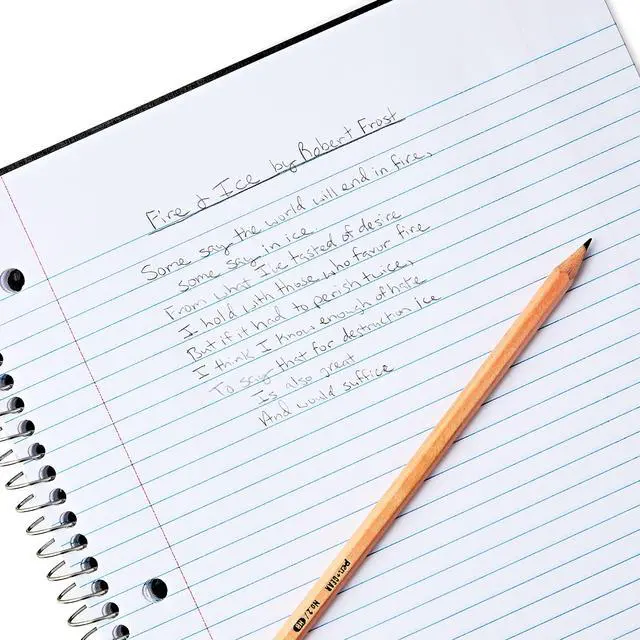 Fire & Ice by Robert Frost
Some say the world will end in fire,
some say in ice.
From what I've tasted of desire
I hold with those who favor fire
But if it had to perish twice,
I think I know enough of hate
To say that for destruction ice
Is also great
And would suffice
PEN+GEAR No.2/HB